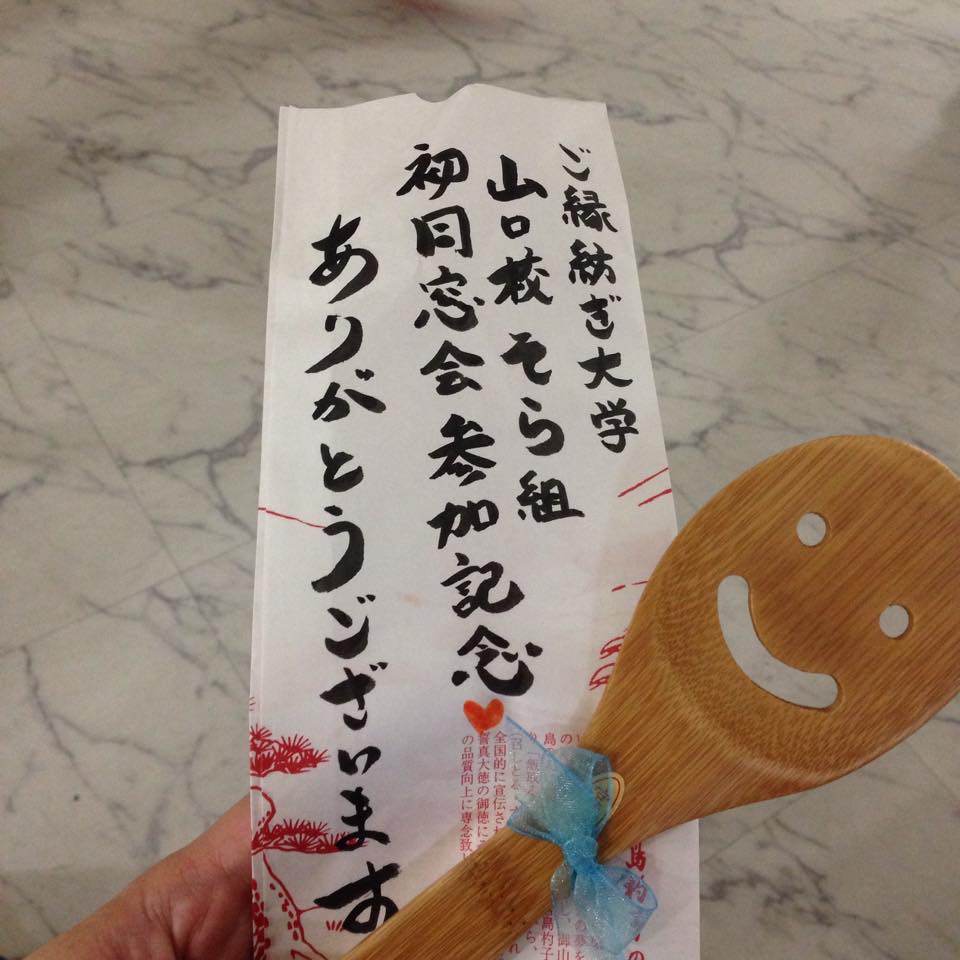 ご縁紡ぎ大学
山口校そら組
初同窓会参加記念
ありがとうございます
全国的に宣伝され
誓真大徳の御徳に
の品質向上に専念致